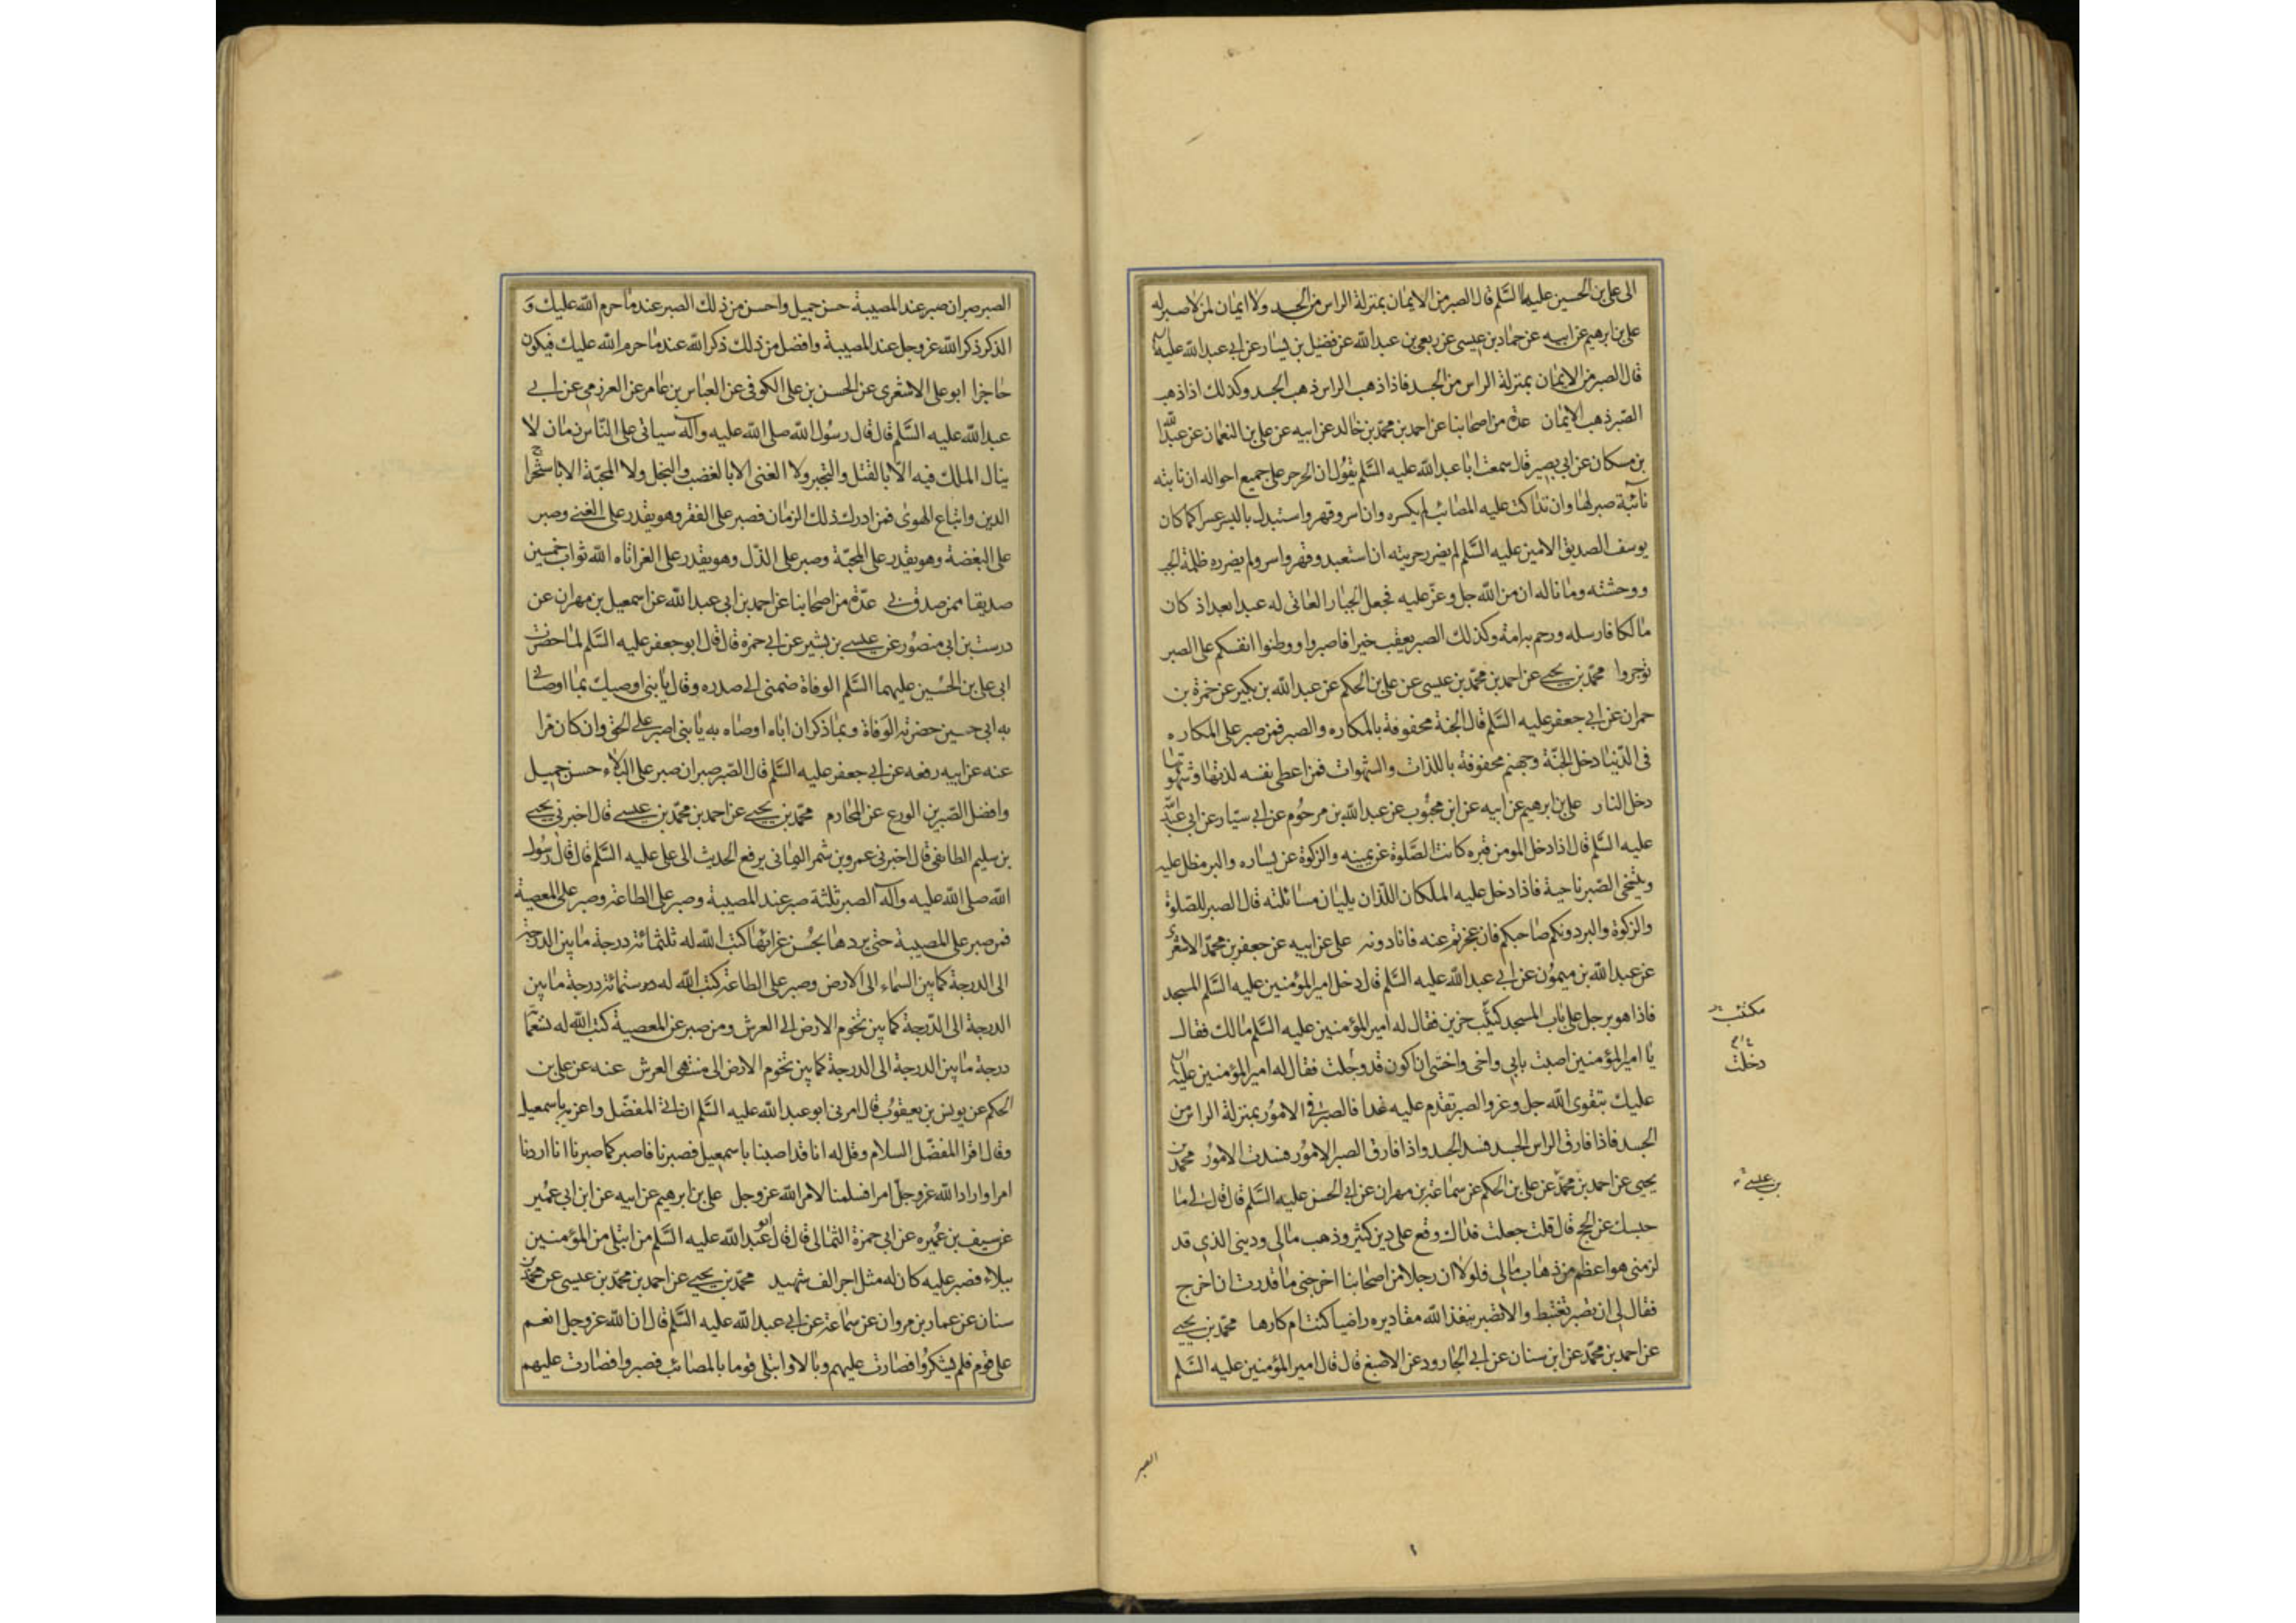 الى على بن الحسين عليهما السَّلم قال الصبر من الايمان بمنزلة الراس من الجسد ولا ايمان لمن لا صبر له
على بن ابرهيم عن ابيه عن حماد بن عيسى عن ربعى بن عبد الله عن فضيل بن يسار عن ابى عبد الله عليه السلم
قال الصبر من الايمان بمنزلة الراس من الجسد فاذا ذهب الراس ذهب الجسد وكذلك اذا ذهب
الصبر ذهب الايمان عدة من اصحابنا عن احمد بن محمد بن خالد عن ابيه عن على بن النعمان عن عبد الله
بن مسكان عن ابى بصير قال سمعت ابا عبد الله عليه السَّلم يقول ان الحر حر على جميع احواله ان نابته
نائبة صبر لها وان تداكت عليه المصائب لم يكسره وان اسر وقهر واستبدل باليسر عسرا كما كان
يوسف الصديق الامين عليه السَّلم لم يضرر حريته ان استعبد وقهر واسر ولم يضرره ظلمة الجب
ووحشته وما ناله ان من الله جل وعز عليه فجعل الجبار العاتى له عبدا بعد اذ كان
مالكا فارسله ورحم به امة وكذلك الصبر يعقب خيرا فاصبروا ووطنوا انفسكم على الصبر
توجروا محمد بن يحيى عن احمد بن محمد بن عيسى عن على بن الحكم عن عبد الله بن بكير عن حمزة بن
حمران عن ابى جعفر عليه السَّلم قال الجنة محفوفة بالمكاره والصبر فمن صبر على المكاره
فى الدنيا دخل الجنة وجهنم محفوفة باللذات والشهوات فمن اعطى نفسه لذتها وشهوتها
دخل النار على بن ابرهيم عن ابيه عن ابن محبوب عن عبد الله بن مرحوم عن ابى سيار عن ابى عبد الله
عليه السَّلم قال اذا دخل المومن قبره كانت الصلوة عن يمينه والزكوة عن يساره والبر مظل عليه
ويتنحى الصبر ناحية فاذا دخل عليه الملكان اللذان يليان مسائلته قال الصبر للصلوة
والزكوة والبر دونكم صاحبكم فان عجزتم عنه فانا دونه على عن ابيه عن جعفر بن محمد الاشعرى
عن عبد الله بن ميمون عن ابى عبد الله عليه السَّلم قال دخل امير المؤمنين عليه السَّلم المسجد
فاذا هو برجل على باب المسجد كئيب حزين فقال له امير المؤمنين عليه السَّلم مالك فقال
يا امير المؤمنين اصبت بابى واخى واخشى ان اكون قد وجلت فقال له امير المؤمنين عليه السلم
عليك بتقوى الله جل وعز والصبر تقدم عليه غدا فالصبر فى الامور بمنزلة الراس من
الجسد فاذا فارق الراس الجسد فسد الجسد واذا فارق الصبر الامور فسدت الامور محمد بن
يحيى عن احمد بن محمد عن على بن الحكم عن سماعة بن مهران عن ابى الحسن عليه السَّلم قال قال لى ما
حبسك عن الحج قال قلت جعلت فداك وقع على دين كثير وذهب مالى ودينى الذى قد
لزمنى هو اعظم من ذهاب مالى فلولا ان رجلا من اصحابنا اخرجنى ما قدرت ان اخرج
فقال لى ان تصبر تغتبط والا تصبر ينفذ الله مقاديره راضيا كنت ام كارها محمد بن يحيى
عن احمد بن محمد عن ابن سنان عن ابى الجارود عن الاصبغ قال قال امير المؤمنين عليه السَّلم
مكتئب
دخلت
بن عيسى
الصبر
الصبر صبران صبر عند المصيبة حسن جميل واحسن من ذلك الصبر عند ما حرم الله عليك و
الذكر ذكر الله عز وجل عند المصيبة وافضل من ذلك ذكر الله عند ما حرم الله عليك فيكون
حاجزا ابو على الاشعرى عن الحسن بن على الكوفى عن العباس بن عامر عن العرزمى عن ابى
عبد الله عليه السَّلم قال قال رسول الله صلى الله عليه وآله سياتى على النّاس زمان لا
ينال الملك فيه الا بالقتل والتجبر ولا الغنى الا بالغضب والبخل ولا المحبّة الا باستخراج
الدين واتباع الهوى فمن ادرك ذلك الزمان فصبر على الفقر وهو يقدر على الغنى وصبر
على البغضة وهو يقدر على المحبّة وصبر على الذل وهو يقدر على العز اتاه الله ثواب خمسين
صديقا ممن صدق بى عدّة من اصحابنا عن احمد بن ابى عبد الله عن اسمعيل بن مهران عن
درست بن ابى منصور عن عيسى بن بشير عن ابى حمزه قال قال ابو جعفر عليه السَّلم لما حضرت
ابى على بن الحسين عليهما السَّلم الوفاة ضمنى الى صدره وقال يا بنى اوصيك بما اوصانى
به ابى حسين حضرته الوفاة وبما ذكر ان اباه اوصاه به يا بنى اصبر على الحق وان كان مرا
عنه عن ابيه رفعه عن ابى جعفر عليه السَّلم قال الصّبر صبران صبر على البلاء حسن جميل
وافضل الصّبرين الورع عن المحارم محمّد بن يحيى عن احمد بن محمّد بن عيسى قال اخبرنى يحيى
بن سليم الطائفى قال اخبرنى عمرو بن شمر اليمانى يرفع الحديث الى على عليه السَّلم قال قال رسول
الله صلى الله عليه وآله الصبر ثلثة صبر عند المصيبة وصبر على الطاعة وصبر على المعصية
فمن صبر على المصيبة حتى يردها بحسن عزائها كتب الله له ثلثمائة درجة ما بين الدرجة
الى الدرجة كما بين السّماء الى الارض وصبر على الطاعة كتب الله له ستمائة درجة ما بين
الدرجة الى الدّرجة كما بين تخوم الارض الى العرش ومن صبر عن المعصية كتب الله له تسعمائة
درجة ما بين الدرجة الى الدرجة كما بين تخوم الارض الى منتهى العرش عنه عن على بن
الحكم عن يونس بن يعقوب قال امرنى ابو عبد الله عليه السَّلم ان اتى المفضّل واعزيه باسمعيل
وقال اقرا المفضّل السلام وقل له انا قد اصبنا باسمعيل فصبرنا فاصبر كما صبرنا انا اردنا
امرا واراد الله عز وجل امرا فسلمنا لامر الله عز وجل على بن ابرهيم عن ابيه عن ابن ابى عمير
عن سيف بن عميره عن ابى حمزة الثمالى قال قال ابو عبد الله عليه السَّلم من ابتلى من المؤمنين
ببلاء فصبر عليه كان له مثل اجر الف شهيد محمّد بن يحيى عن احمد بن محمّد بن عيسى عن محمّد بن
سنان عن عمار بن مروان عن سماعة عن ابى عبد الله عليه السَّلم قال ان الله عز وجل انعم
على قوم فلم يشكروا فصارت عليهم وبالا وابتلى قوما بالمصائب فصبروا فصارت عليهم